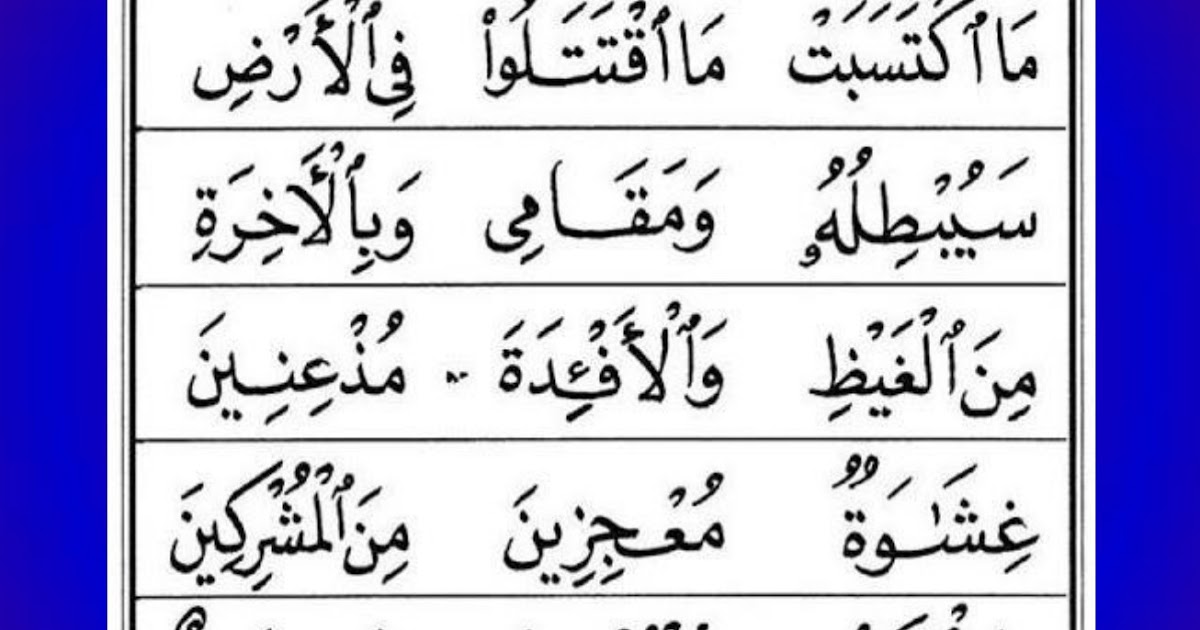 مَا ٱكْتَسَبَتْ مَا ٱقْتَتَلُوا۟ فِى ٱلْأَرْضِ
سَيُبْطِلُهُۥ وَمَقَامِى وَبِٱلْأَخِرَةِ
مِنَ ٱلْغَيْظِ وَٱلْأَفْـِٔدَةَ مُذْعِنِينَ
غِشَـٰوَةٌ مُعْجِزِينَ مِنَ ٱلْمُشْرِكِينَ